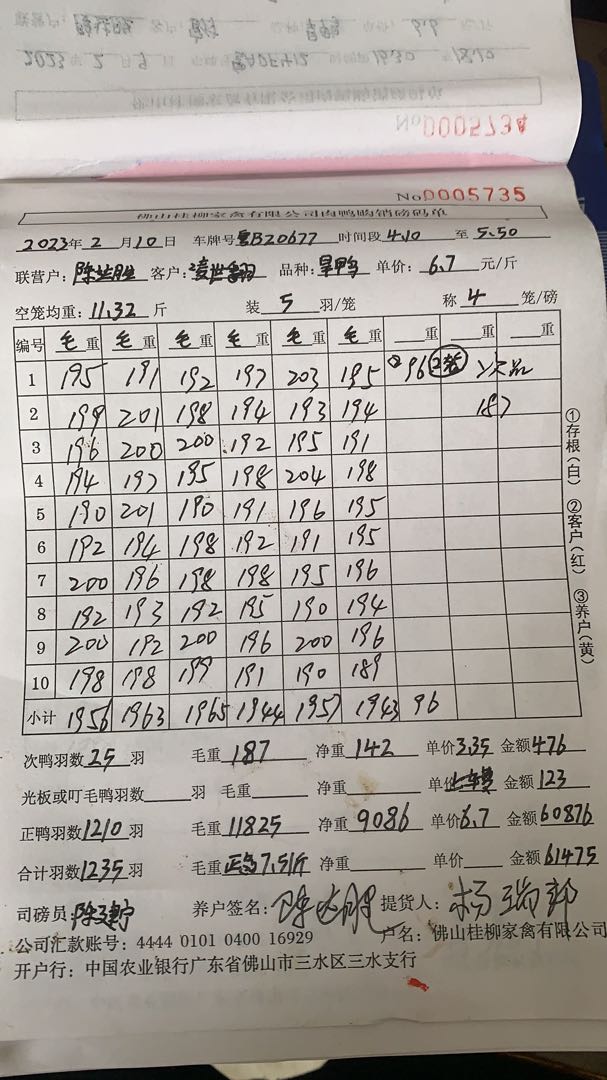 No0005734
No0005735
佛山桂柳家禽有限公司肉鸭购销磅码单
2023年2月10日 车牌号粤B20677 时间段4.10至5.50
联营户：陈 胜 客户：凌世 品种：旱鸭 单价：6.7元/斤
空笼均重：11.32斤 装5羽/笼 称4笼/磅
编号 毛重 毛重 毛重 毛重 毛重 毛重 重 重 重
1 195 191 192 197 203 195 96 2笼 次品
2 199 201 198 194 193 194 187
3 196 200 200 192 195 191
4 194 197 195 198 204 198
5 190 201 190 191 196 195
6 192 194 198 192 191 195
7 200 196 198 198 195 196
8 192 193 192 195 190 194
9 200 192 200 196 200 196
10 198 198 199 191 190 189
小计 1956 1963 1965 1944 1957 1943 96
①存根(白) ②客户(红) ③养户(黄)
次鸭羽数25羽 毛重187 净重142 单价3.35 金额476
光板或叮毛鸭羽数 羽 毛重 净重 单价 金额123
正鸭羽数1210羽 毛重11825 净重9086 单价6.7 金额60876
合计羽数1235羽 毛重正鸟7.51斤 净重 单价 金额61475
司磅员：陈 养户签名：陈 胜 提货人：杨瑞郭
公司汇款账号：4444 0101 0400 16929 户名：佛山桂柳家禽有限公司
开户行：中国农业银行广东省佛山市三水区三水支行